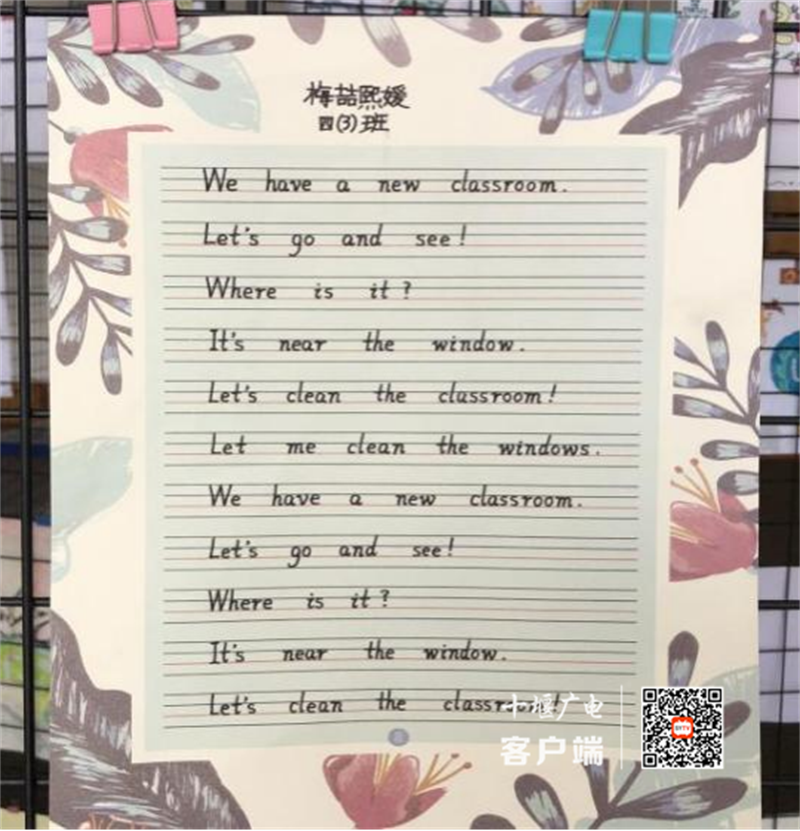 梅喆熙媛
四(3)班
We have a new classroom.
Let's go and see!
Where is it?
It's near the window.
Let's clean the classroom!
Let me clean the windows.
We have a new classroom.
Let's go and see!
Where is it?
It's near the window.
Let's clean the classroom!
十堰广电
客户端